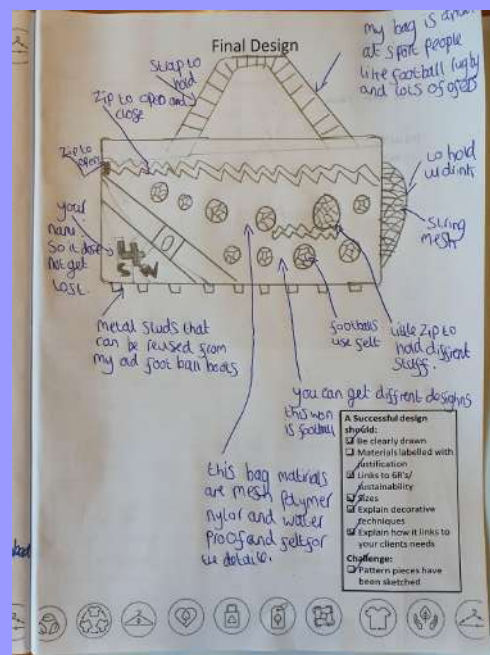 Final Design
my bag is
at sport people
like football rugby
and lots of
Strap to
hold
Zip to open and
close
Zip to
open
to hold
drink
String
mesh
your
name
So it dose
not get
Lost.
4
SW
metal studs that
can be reused from
my old foot ball boots
footballs
use felt
little Zip to
hold diffrent
stuff.
you can get diffrent designs
this won
is football
this bag materials
are mesh Polymer
nylor and water
Proof and felt for
the details.
A Successful design
should:
Be clearly drawn
Materials labelled with
justification
Links to 6R's/
sustainability
Sizes
Explain decorative
techniques
Explain how it links to
your clients needs
Challenge:
Pattern pieces have
been sketched